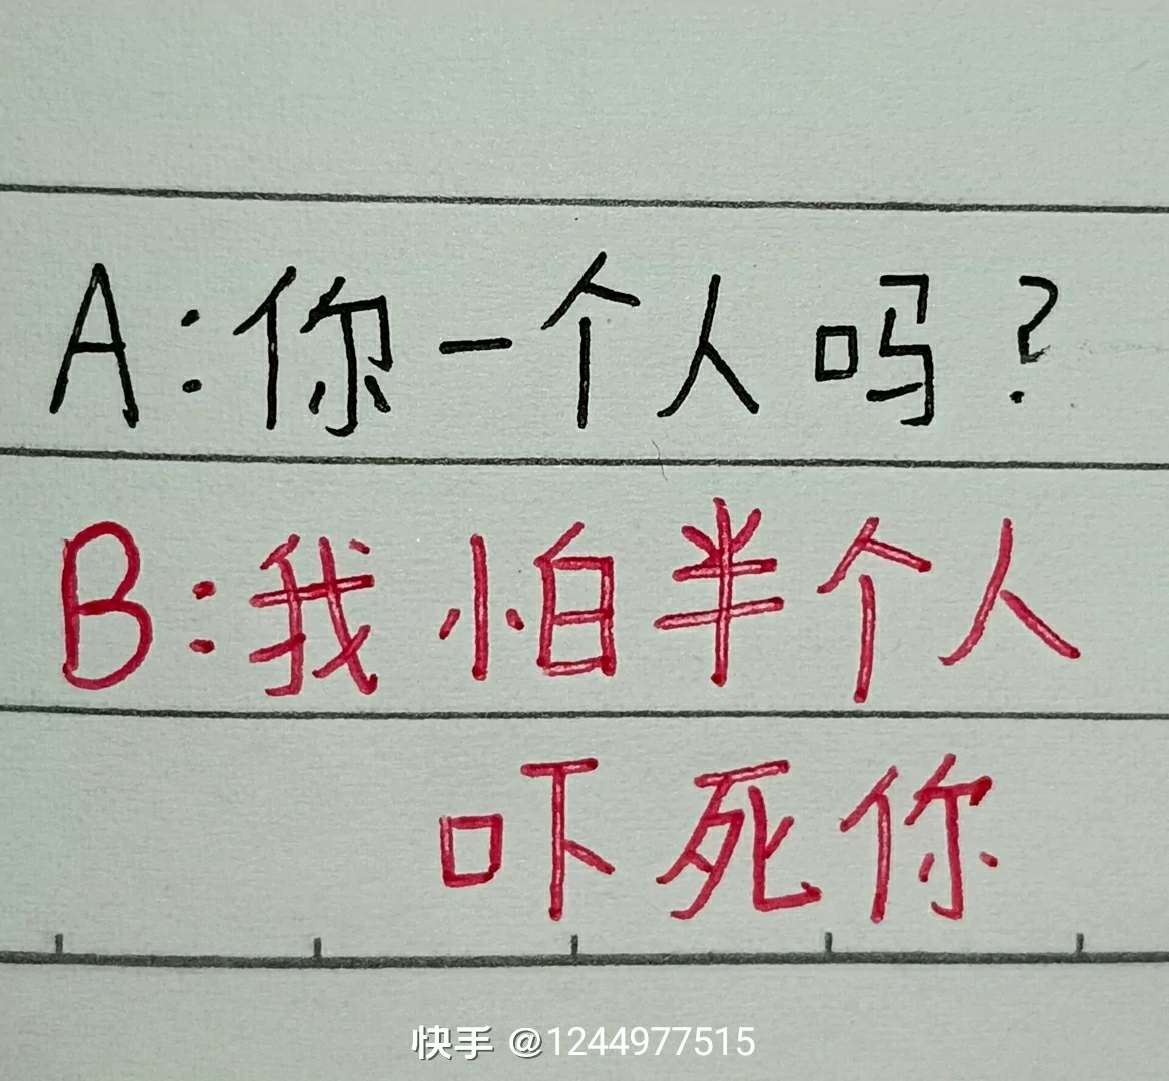 A:你一个人吗?
B:我怕半个人
吓死你
快手 @1244977515